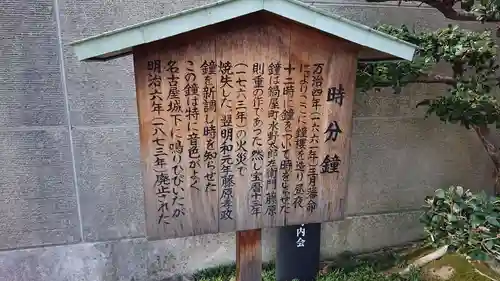 時分鐘
万治四年(一六六一年)三月藩命
によりここに鐘楼を造り昼夜
十二時に鐘をついて時をしらせた
鐘は鍋屋町水野太郎左衛門藤原
則重の作であった 然し宝暦十三年
(一七六三年)の火災で
焼失した、翌明和元年藤原孝政
鐘を新調し時を知らせた
この鐘は特に音色がよく
名古屋城下に鳴りひびいたが
明治六年(一八七三年)廃止された
内会